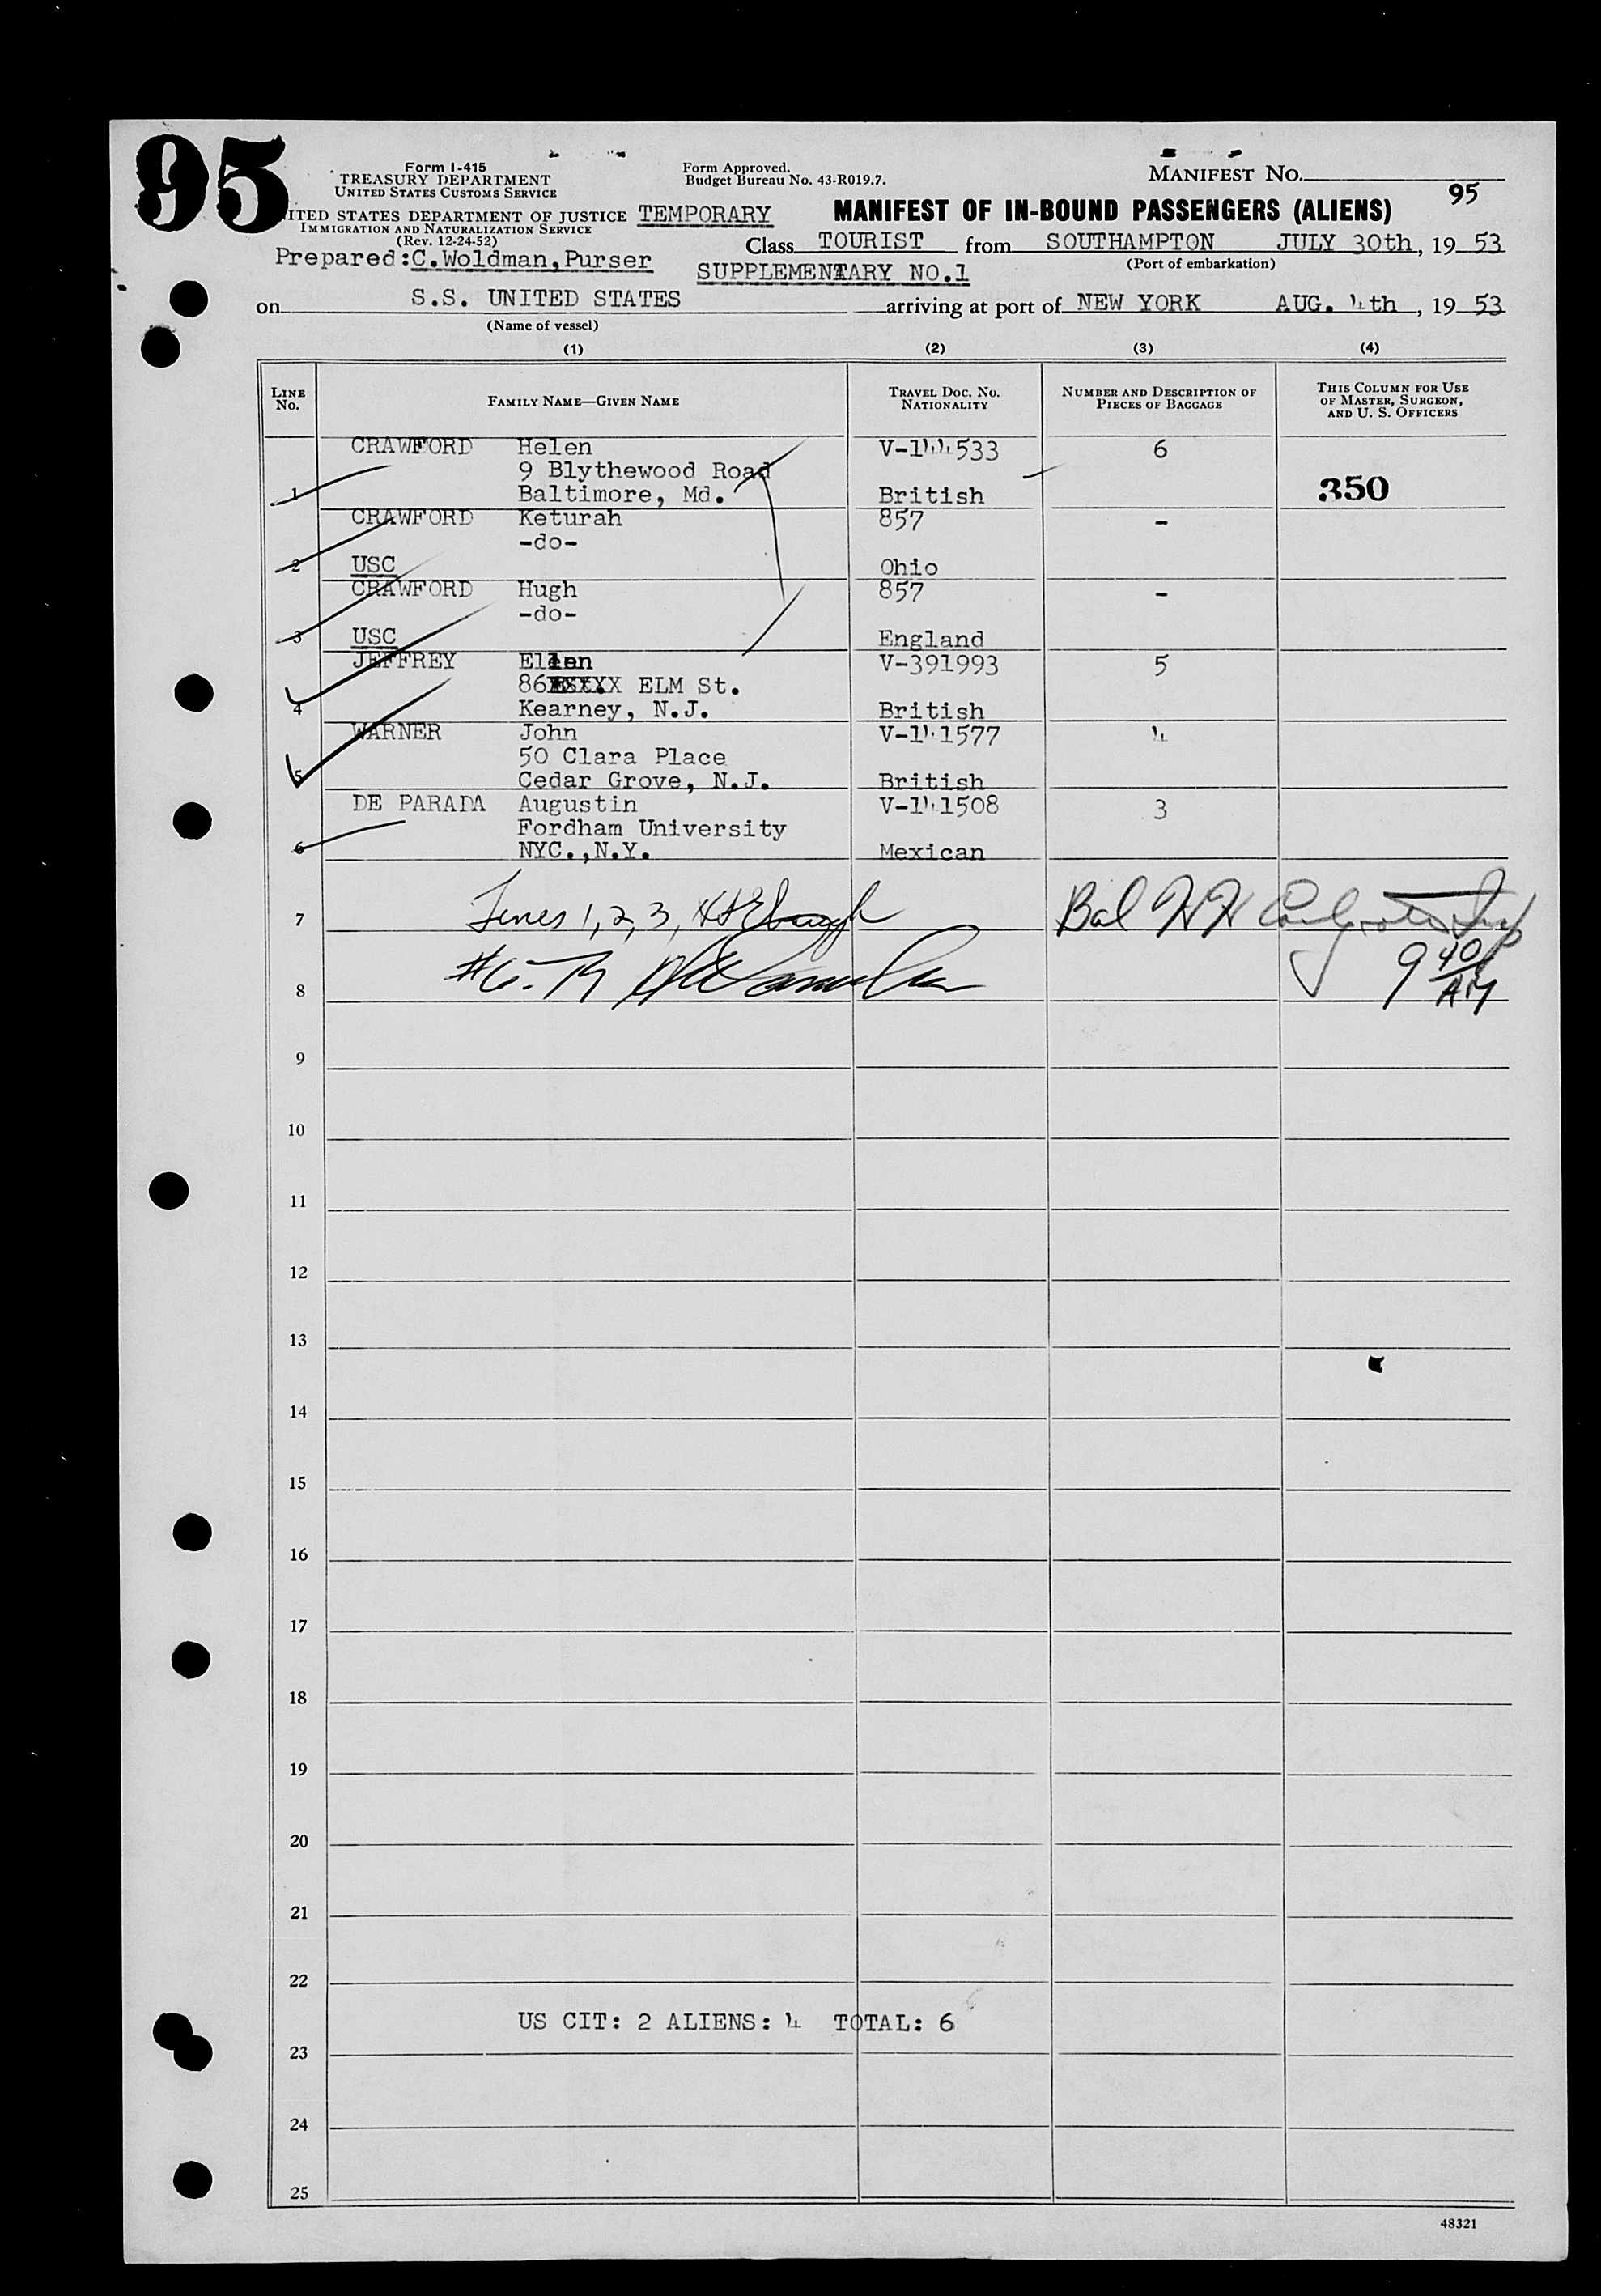 95
Form I-415
TREASURY DEPARTMENT
UNITED STATES CUSTOMS SERVICE
ITED STATES DEPARTMENT OF JUSTICE
IMMIGRATION AND NATURALIZATION SERVICE
(Rev. 12-24-52)
Prepared:C.Woldman,Purser
Form Approved.
Budget Bureau No. 43-R019.7.
MANIFEST NO.
95
TEMPORARY MANIFEST OF IN-BOUND PASSENGERS (ALIENS)
Class TOURIST from SOUTHAMPTON JULY 30th, 19 53
(Port of embarkation)
SUPPLEMENTARY NO.1
on S.S. UNITED STATES arriving at port of NEW YORK AUG. 4th, 19 53
(Name of vessel)
(1) (2) (3) (4)
LINE NO. FAMILY NAME—GIVEN NAME TRAVEL DOC. NO. NATIONALITY NUMBER AND DESCRIPTION OF PIECES OF BAGGAGE THIS COLUMN FOR USE OF MASTER, SURGEON, AND U. S. OFFICERS
CRAWFORD Helen V-144533 6
9 Blythewood Road
1 Baltimore, Md. British 350
CRAWFORD Keturah 857 -
-do-
2 USC Ohio
CRAWFORD Hugh 857 -
-do-
3 USC England
JEFFREY Ellen V-391993 5
86 ELM St.
4 Kearney, N.J. British
WARNER John V-141577 4
50 Clara Place
5 Cedar Grove, N.J. British
DE PARADA Augustin V-141508 3
Fordham University
6 NYC.,N.Y. Mexican
7 Lines 1, 2, 3, Bal
8 #6- 9 40 AM
9
10
11
12
13
14
15
16
17
18
19
20
21
22
US CIT: 2 ALIENS: 4 TOTAL: 6
23
24
25
48321